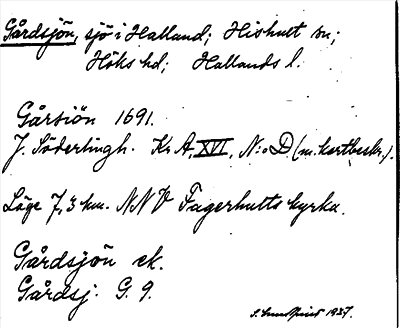 Gårdsjön, sjö i Halland; Hishult sn;
Höks hd; Hallands l.
Gårsiön 1691.
J. Söderlingh. Kr A, XVI, N:o D (m. kartbeskr.).
Läge 7,3 km. NNV Fagerhults kyrka.
Gårdsjön ek.
Gårdsj. G. 9.
1927.